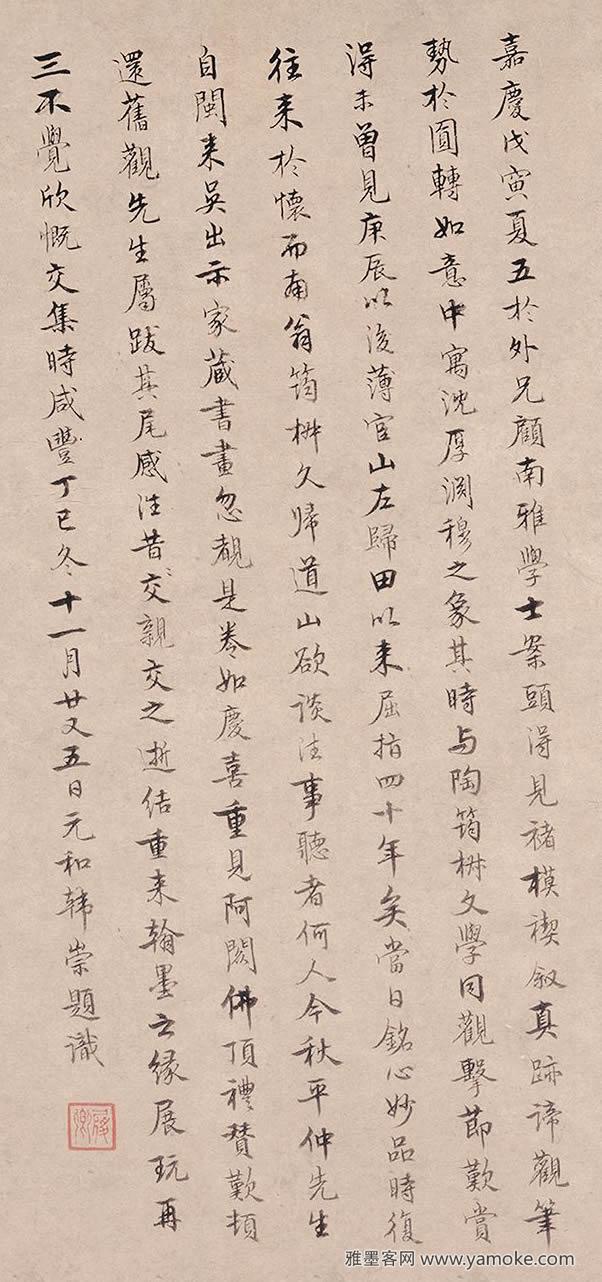 嘉慶戊寅夏五於外兄顧南雅學士案頭得見褚模禊敘真跡諦觀筆
勢於圓轉如意中寓沈厚淵穆之象其時与陶筠椒文學同觀擊節歎賞
得未曾見庚辰以後薄官山左歸田以来屈指四十年矣當日銘心妙品時復
往来於懷而南翁筠椒久歸道山欲談往事聽者何人今秋平仲先生
自閩来吳出示家藏書畫忽覩是卷如慶喜重見阿閦佛頂禮贊歎頓
還舊觀先生屬跋其尾感往昔交親交之逝結重来翰墨之緣展玩再
三不覺欣慨交集時咸豐丁巳冬十一月廿又五日元和韓崇題識
履卿
雅墨客网 www.yamoke.com